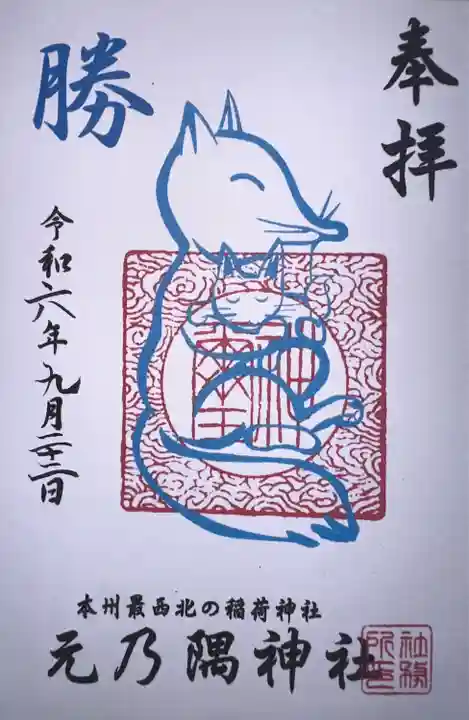 奉拝
勝
令和六年九月二十二日
本州最西北の稲荷神社
元乃隅神社
社務
所印